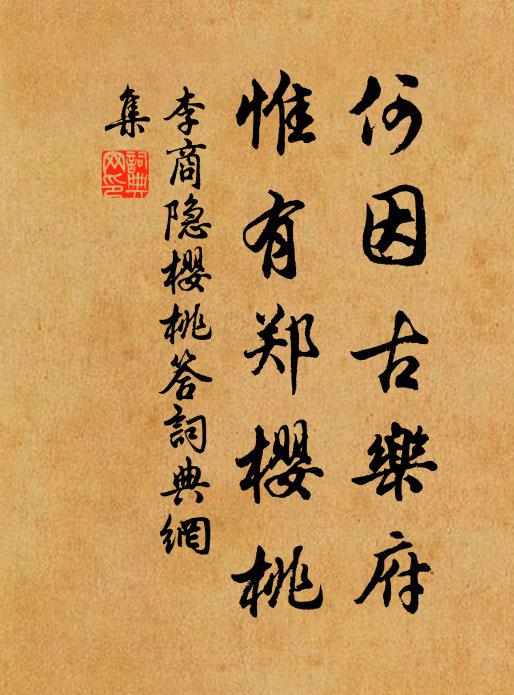 何因古樂府
惟有郑櫻桃
李商隐櫻桃答詞典網
集
詞典
网印